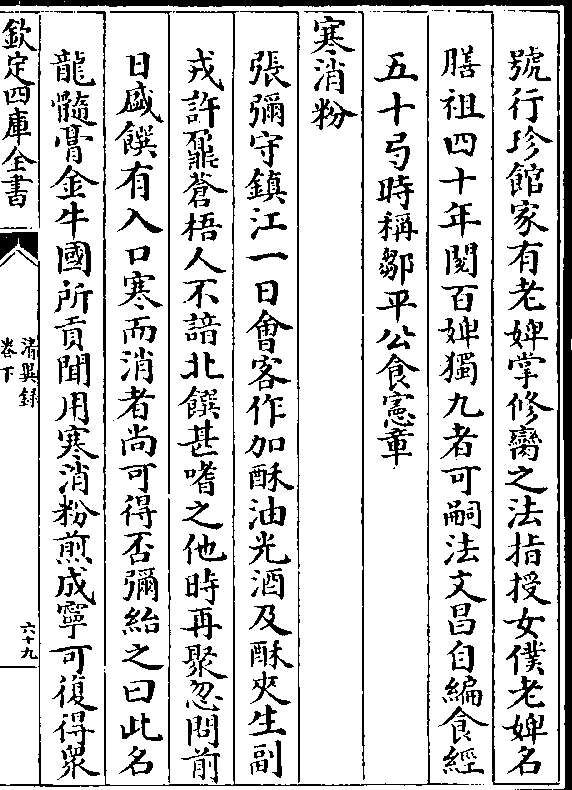 號行珍館家有老婢掌修臠之法指授女僕老婢名
膳祖四十年閱百婢獨九者可嗣法文昌自編食經
五十弓時稱鄒平公食憲章
寒消粉
張彌守鎮江一日會客作加酥油光酒及酥夾生副
戎許鼐蒼梧人不諳北饌甚嗜之他時再聚忽問前
日盛饌有入口寒而消者尚可得否彌紿之曰此名
龍髓膏金牛國所貢聞用寒消粉煎成寧可復得衆
欽定四庫全書
清異錄
卷下
六十九